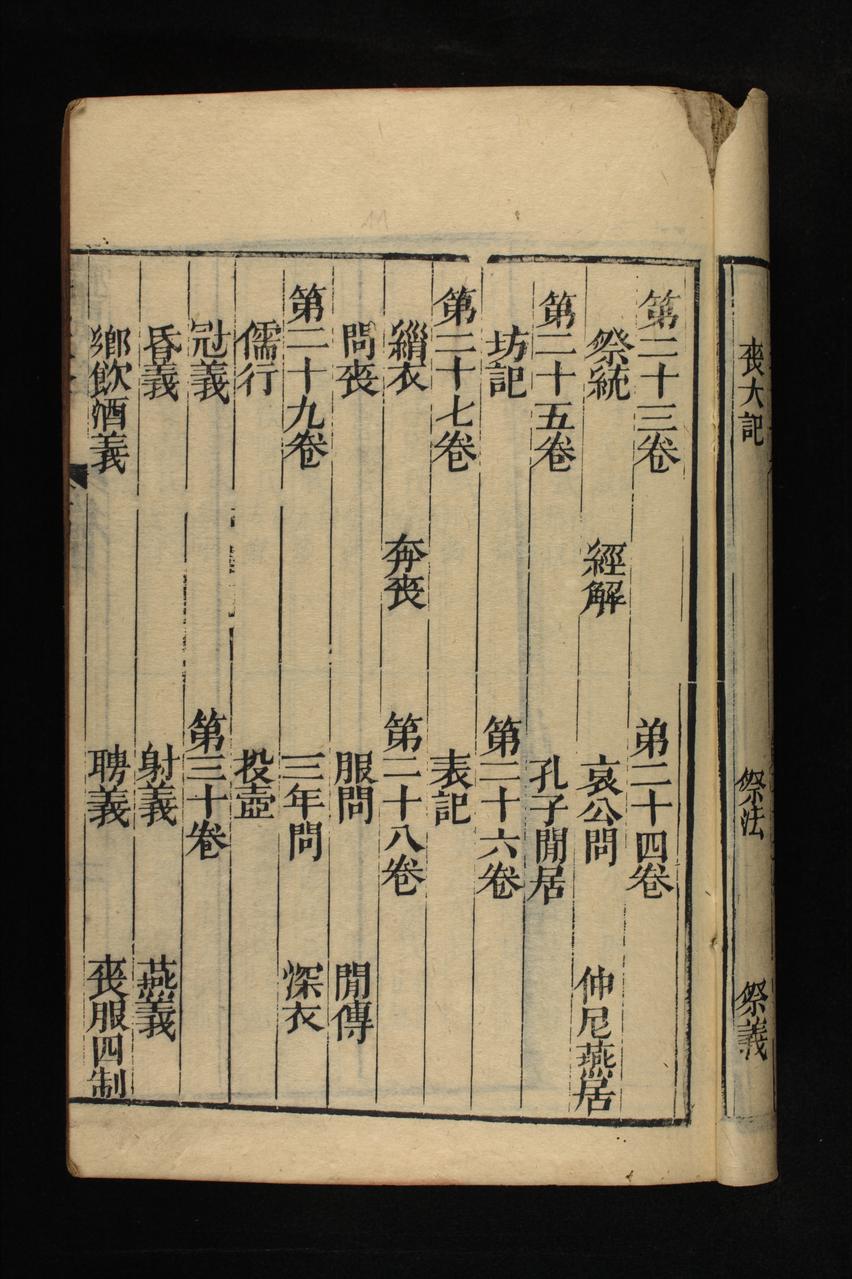 喪大記 祭法 祭義
第二十三卷 弟二十四卷
祭統 經解 哀公問 仲尼燕居
第二十五卷 孔子閒居
坊記 第二十六卷
第二十七卷 表記
緇衣 奔喪 第二十八卷
問喪 服問 閒傳
第二十九卷 三年問 深衣
儒行 投壺
冠義 第三十卷
昏義 射義 燕義
鄉飲酒義 聘義 喪服四制